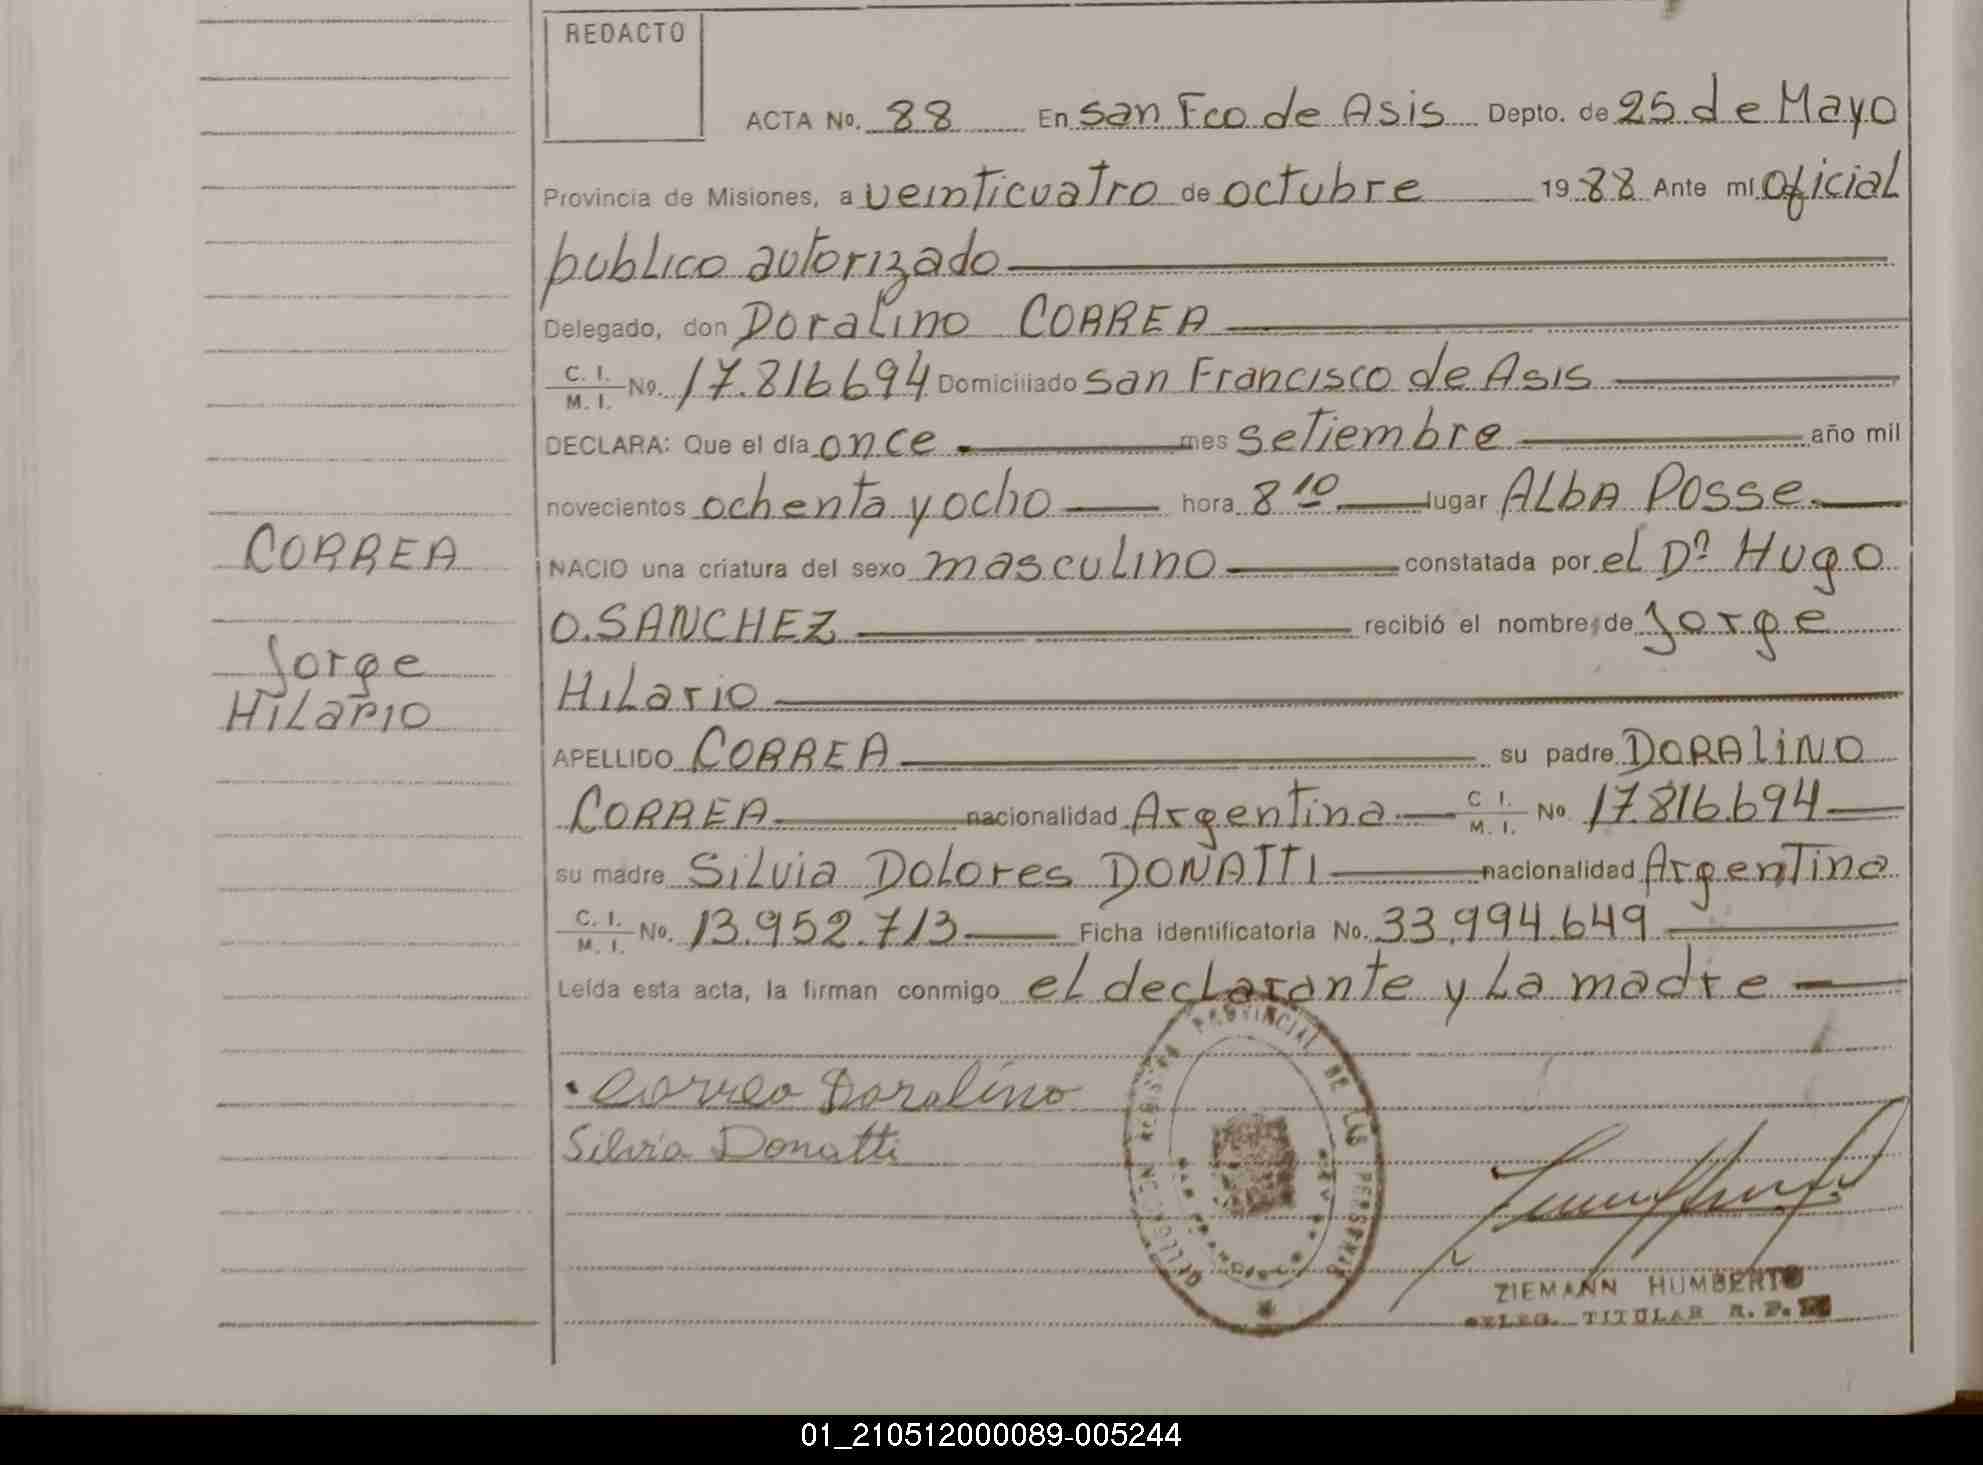 REDACTO
ACTA No. 88 En San Fco de Asis Depto. de 25 de Mayo
Provincia de Misiones, a veinticuatro de octubre 1988 Ante mí oficial
publico autorizado
Delegado, don Doralino CORREA
C. I. M. I. No. 17.816694 Domiciliado San Francisco de Asis
DECLARA: Que el día once mes setiembre año mil
novecientos ochenta y ocho hora 8 10 lugar ALbA POSSe
CORREA
NACIO una criatura del sexo masculino constatada por el Dº Hugo
O. SANCHEZ recibió el nombre de Jorge
Jorge
Hilario
HiLario
APELLIDO CORREA su padre DORALiNO
CORREA nacionalidad Argentina C I. M. I. No. 17.816.694
su madre SiLvia DoLores DONATTI nacionalidad Argentina
C. I. M. I. No. 13.952.713 Ficha identificatoria No. 33.994.649
Leída esta acta, la firman conmigo el declarante y La madre
Correa Doralino
Silvia Donatti
DELEGACION REGISTRO PROVINCIAL DE LAS PERSONAS
ZIEMANN HUMBERTO
DELEG. TITULAR R. P.
01_210512000089-005244